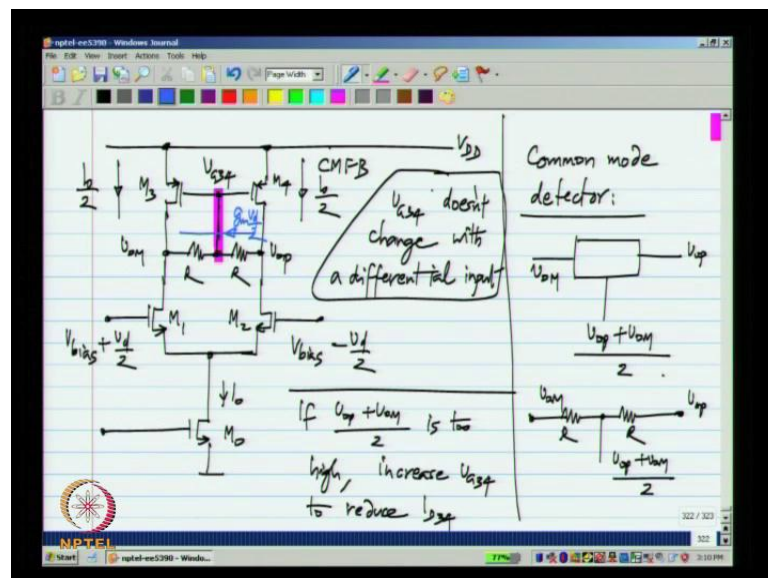 nptel-ee5390 - Windows Journal
File Edit View Insert Actions Tools Help
Page Width
V_DD
CMFB
I_0/2
M3
V_G34
M4
I_0/2
g_m v_d/2
V_OM
R
R
V_OP
V_G34 doesn't
change with
a differential input
M1
M2
V_bias + v_d/2
V_bias - v_d/2
I_0
M0
if (V_OP + V_OM)/2 is too
high, increase V_G34
to reduce I_D34
Common mode
detector:
V_OM
V_OP
(V_OP + V_OM)/2
V_OM
V_OP
R
R
(V_OP + V_OM)/2
322 / 323
322
NPTEL
Start
nptel-ee5390 - Windo...
77%
3:10 PM